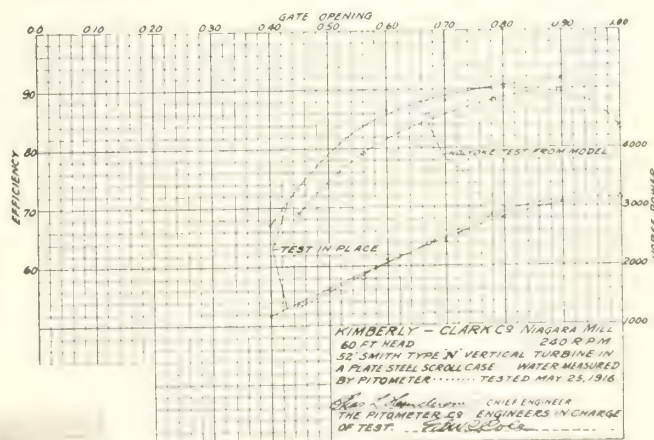 GATE OPENING
0.0 0.10 0.20 0.30 0.40 0.50 0.60 0.70 0.80 0.90 1.00
90
80
70
60
EFFICIENCY
4000
3000
2000
1000
HORSE POWER
HOLYOKE TEST FROM MODEL
TEST IN PLACE
KIMBERLY - CLARK CO NIAGARA MILL
60 FT HEAD 240 R P M
52" SMITH TYPE "N" VERTICAL TURBINE IN
A PLATE STEEL SCROLL CASE WATER MEASURED
BY PITOMETER ........ TESTED MAY 25, 1916
CHIEF ENGINEER
THE PITOMETER CO ENGINEERS IN CHARGE
OF TEST.